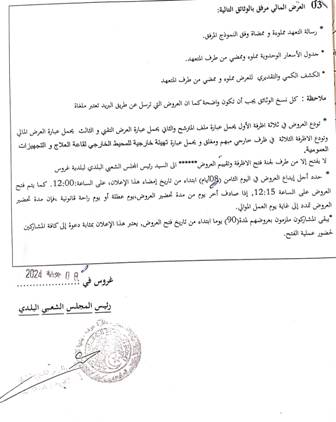 03/ العرض المالي مرفق بالوثائق التالية:
* رسالة التعهد مملوءة و ممضاة وفق النموذج المرفق.
* جدول الأسعار الوحدوية مملوء وممضي من طرف المتعهد.
* الكشف الكمي والتقديري للعرض مملوء و ممضي من طرف المتعهد
ملاحظة : كل نسخ الوثائق يجب أن تكون واضحة كما ان العروض التي ترسل عن طريق البريد تعتبر ملغاة
* تودع العروض في ثلاثة اظرفة الأول يحمل عبارة ملف المترشح والثاني يحمل عبارة العرض التقني و الثالث يحمل عبارة العرض المالي
وتودع الاظرفة الثلاثة في ظرف خارجي مبهم ومغلق و يحمل عبارة تهيئة خارجية للمحيط الخارجي لقاعة العلاج و التجهيزات
العمومية.
لا يفتح إلا من طرف لجنة فتح الاظرفة وتقييم العروض***** الى السيد رئيس المجلس الشعبي البلدي لبلدية غروس
* حدد أجل إيداع العروض في اليوم الثامن (08أيام) ابتداء من تاريخ إمضاء هذا الإعلان، على الساعة:12:00. كما يتم فتح
العروض على الساعة 12:15. إذا صادف آخر يوم من مدة تحضير العروض،يوم عطلة أو يوم راحة قانونية ،فإن مدة تحضير
العروض تمدد إلى غاية يوم العمل الموالي.
*يبقى المشاركون ملزمون بعروضهم لمدة(90) يوما ابتداء من تاريخ فتح العروض، يعتبر هذا الإعلان بمثابة دعوة إلى كافة المشاركين
لحضور عملية الفتح.
غروس في 08 2024
رئيس المجلس الشعبي البلدي